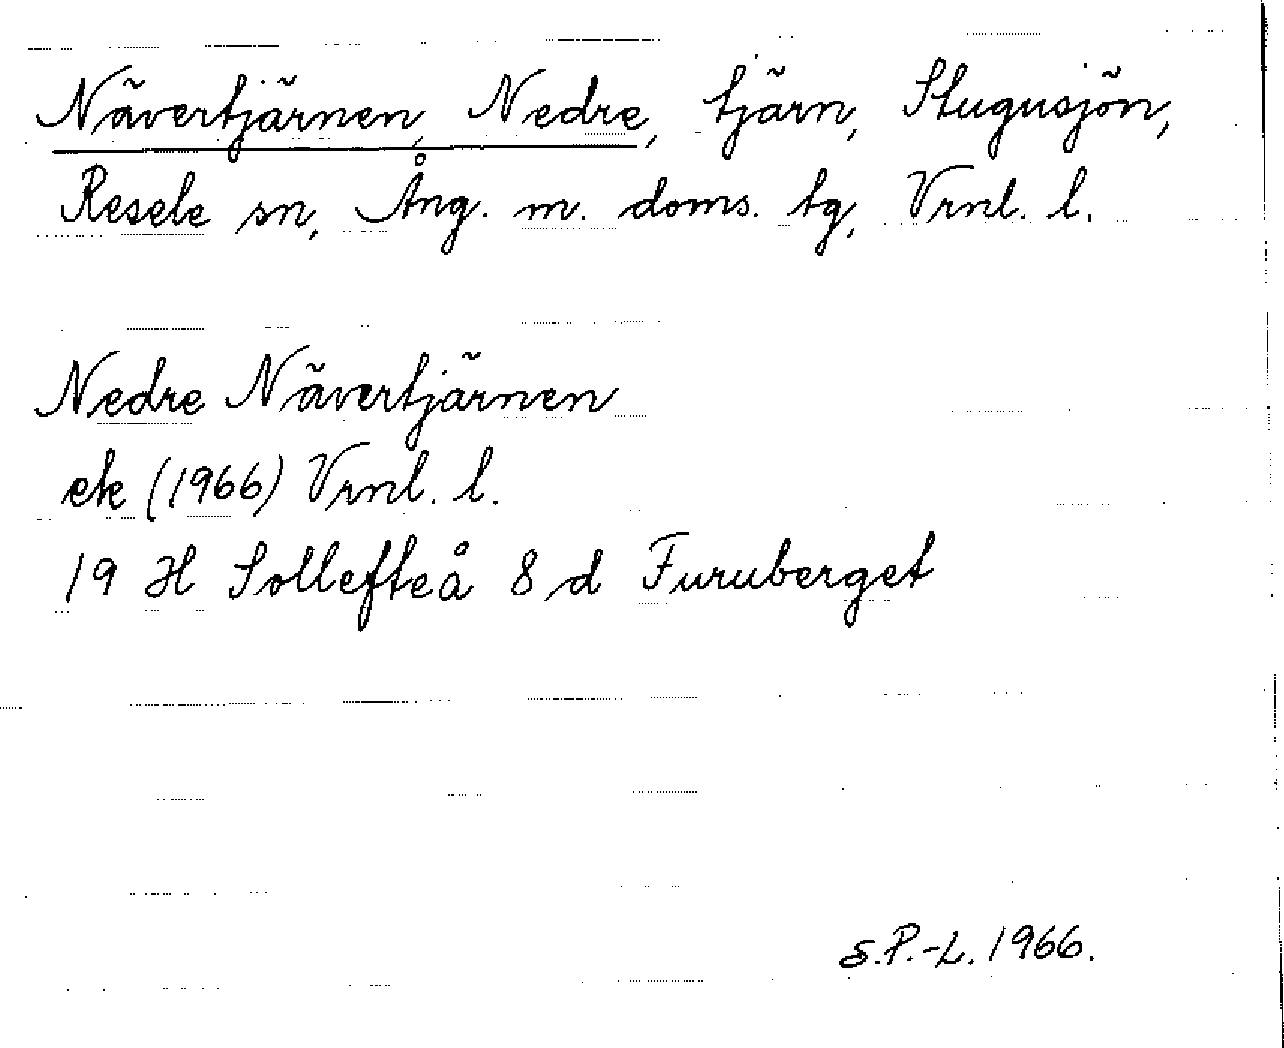 Nävertjärnen, Nedre, tjärn, Stugusjön,
Resele sn, Ång. m. doms. tg, Vrnl. l.
Nedre Nävertjärnen
ek (1966) Vrnl. l.
19 H Sollefteå 8 d Furuberget
S.P.-L. 1966.